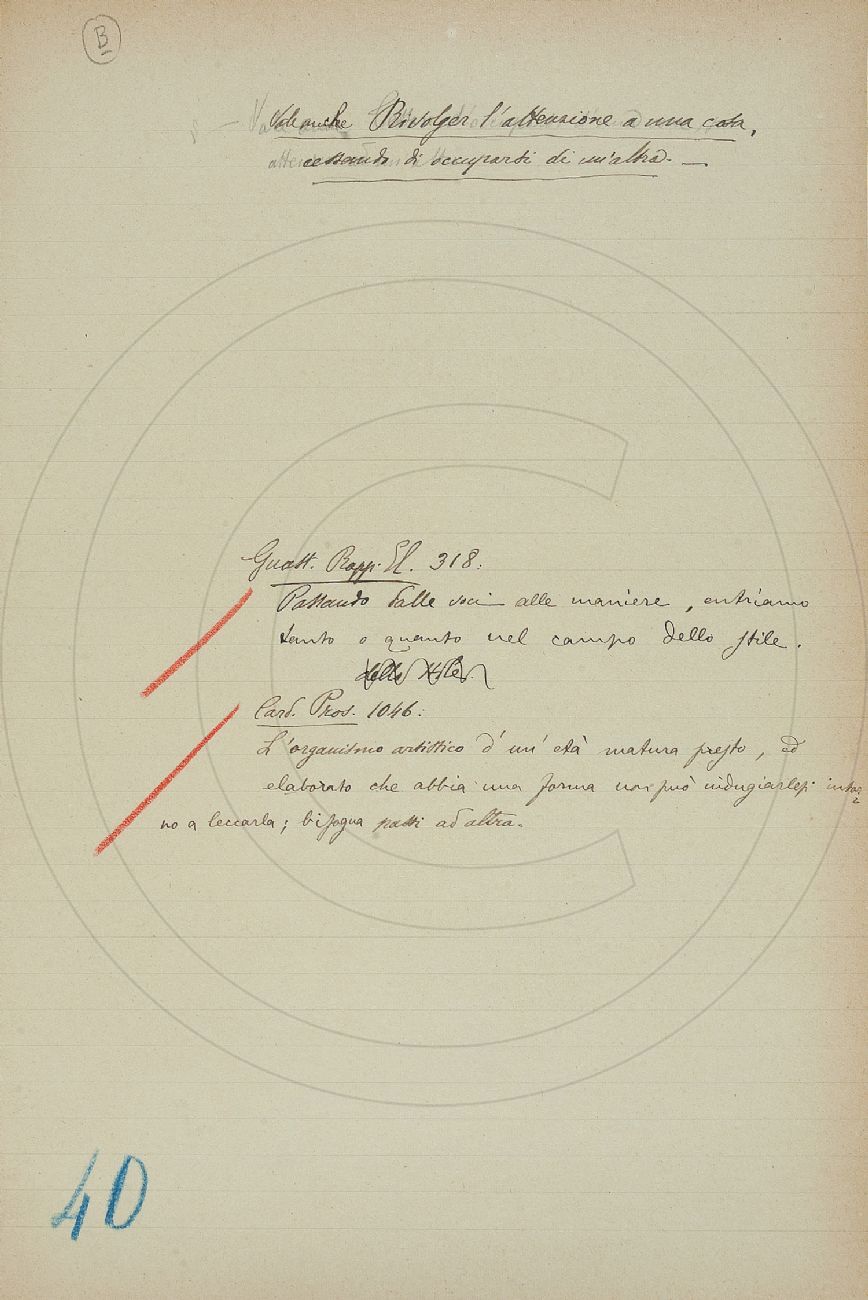 B
Vale anche Rivolger l'attenzione a una cosa,
cessando di occuparsi di un'altra. —
Guast. Rapp. El. 318:
Passando dalle voci alle maniere, entriamo
tanto o quanto nel campo dello stile.
dello stile.
Card. Pros. 1046:
L'organismo artistico d'un'età matura presto, ed
elaborato che abbia una forma non può indugiarlesi intor=
no a leccarla; bisogna passi ad altra.
40